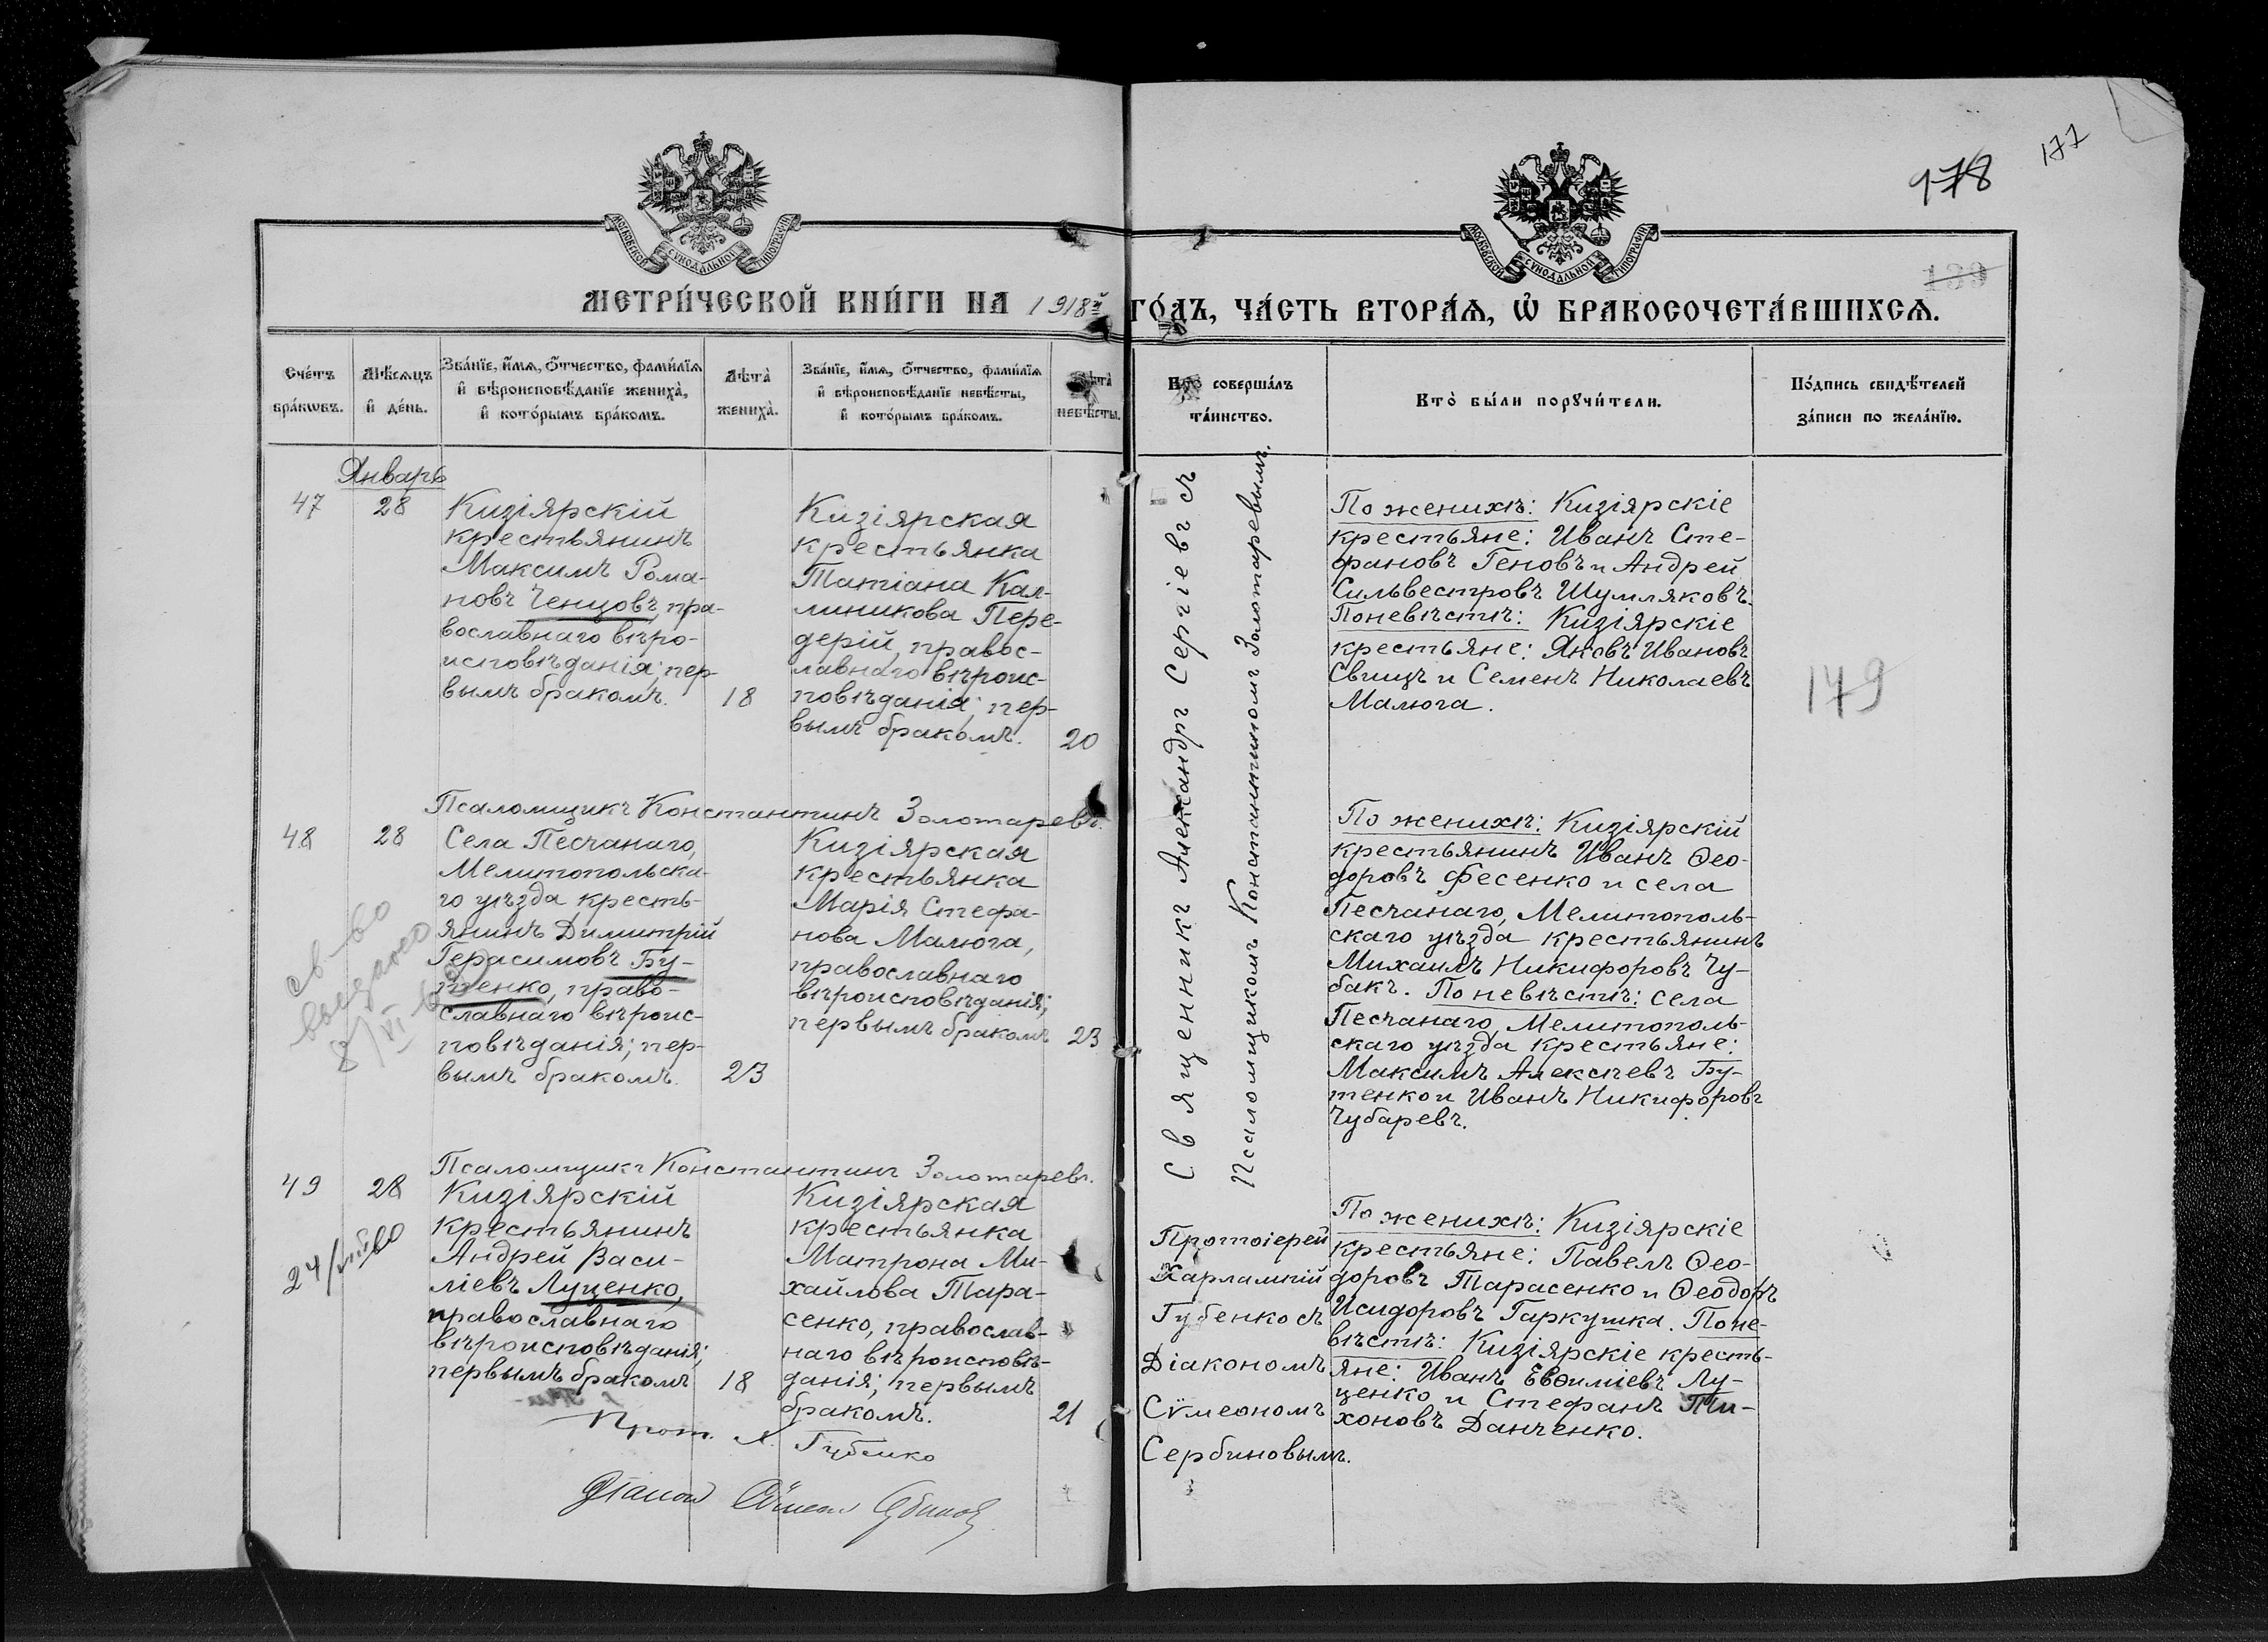 177
978
139
МОСКОВСКОЙ СΥНОДАЛЬНОЙ ТИПОГРАФІИ
МОСКОВСКОЙ СΥНОДАЛЬНОЙ ТИПОГРАФІИ
МЕТРИ́ЧЕСКОЙ КНИ́ГИ НА 1918й ГО́ДЪ, ЧА́СТЬ ВТОРА́Ѧ, Ѡ҆ БРАКОСОЧЕТА́ВШИХСѦ.
Сче́тъ бра́кѡвъ.
Мѣ́сѧцъ и҆ де́нь.
Зва́нїе, и҆́мѧ, ѻ҆́тчество, фами́лїѧ и҆ вѣроисповѣ́данїе жениха̀, и҆ кото́рымъ бра́комъ.
Лѣта̀ жениха̀.
Зва́нїе, и҆́мѧ, ѻ҆́тчество, фами́лїѧ и҆ вѣроисповѣ́данїе невѣ́сты, и҆ кото́рымъ бра́комъ.
Лѣта̀ невѣ́сты.
Кто̀ соверша́лъ та́инство.
Кто̀ бы́ли порꙋчи́тели.
По́дпись свидѣ́телей за́писи по жела́нїю.
Январь
47
28
Кизіярскій
крестьянинъ
Максимъ Рома-
новъ Ченцовъ, пра-
вославнаго вѣро-
исповѣданія; пер-
вымъ бракомъ.
18
Кизіярская
крестьянка
Татіана Кал-
линикова Пере-
дерій, правос-
лавнаго вѣроис-
повѣданія; пер-
вымъ бракомъ.
20
Священникъ Александръ Сергіевъ съ
Псаломщикомъ Константиномъ Золотаревымъ.
По женихѣ: Кизіярскіе
крестьяне: Иванъ Сте-
фановъ Геновъ и Андрей
Сильвестровъ Шумляковъ.
По невѣстѣ: Кизіярскіе
крестьяне: Яковъ Ивановъ
Свищъ и Семенъ Николаевъ
Малюга.
149
Псаломщикъ Константинъ Золотаревъ.
48
28
Села Песчанаго,
Мелитопольска-
го уѣзда кресть-
янинъ Димитрій
Герасимовъ Бу-
тенко, право-
славнаго вѣроис-
повѣданія; пер-
вымъ бракомъ.
23
св-во
выдано
8/VI
Кизіярская
крестьянка
Марія Стефа-
нова Малюга,
православнаго
вѣроисповѣданія;
первымъ бракомъ
23
По женихѣ: Кизіярскій
крестьянинъ Иванъ Ѳео-
доровъ Фесенко и села
Песчанаго, Мелитополь-
скаго уѣзда крестьянинъ
Михаилъ Никифоровъ Чу-
бакъ. По невѣстѣ: села
Песчанаго, Мелитополь-
скаго уѣзда крестьяне:
Максимъ Алексѣевъ Бу-
тенко и Иванъ Никифоровъ
Чубаревъ.
Псаломщикъ Константинъ Золотаревъ.
49
28
Кизіярскій
крестьянинъ
Андрей Васи-
ліевъ Луценко,
православнаго
вѣроисповѣданія;
первымъ бракомъ
18
Кизіярская
крестьянка
Матрона Ми-
хайлова Тара-
сенко, православ-
наго вѣроисповѣ-
данія; первымъ
бракомъ.
21
Протоіерей
Харлампій
Губенко съ
Діакономъ
Сѵмеономъ
Сербиновымъ.
По женихѣ: Кизіярскіе
крестьяне: Павелъ Ѳео-
доровъ Тарасенко и Ѳеодоръ
Исидоровъ Гаркушка. По не-
вѣстѣ: Кизіярскіе кресть-
яне: Иванъ Евѳиміевъ Лу-
ценко и Стефанъ Ти-
хоновъ Данченко.
Прот. Х. Губенко
Діаконъ Сѵмеонъ Сербиновъ